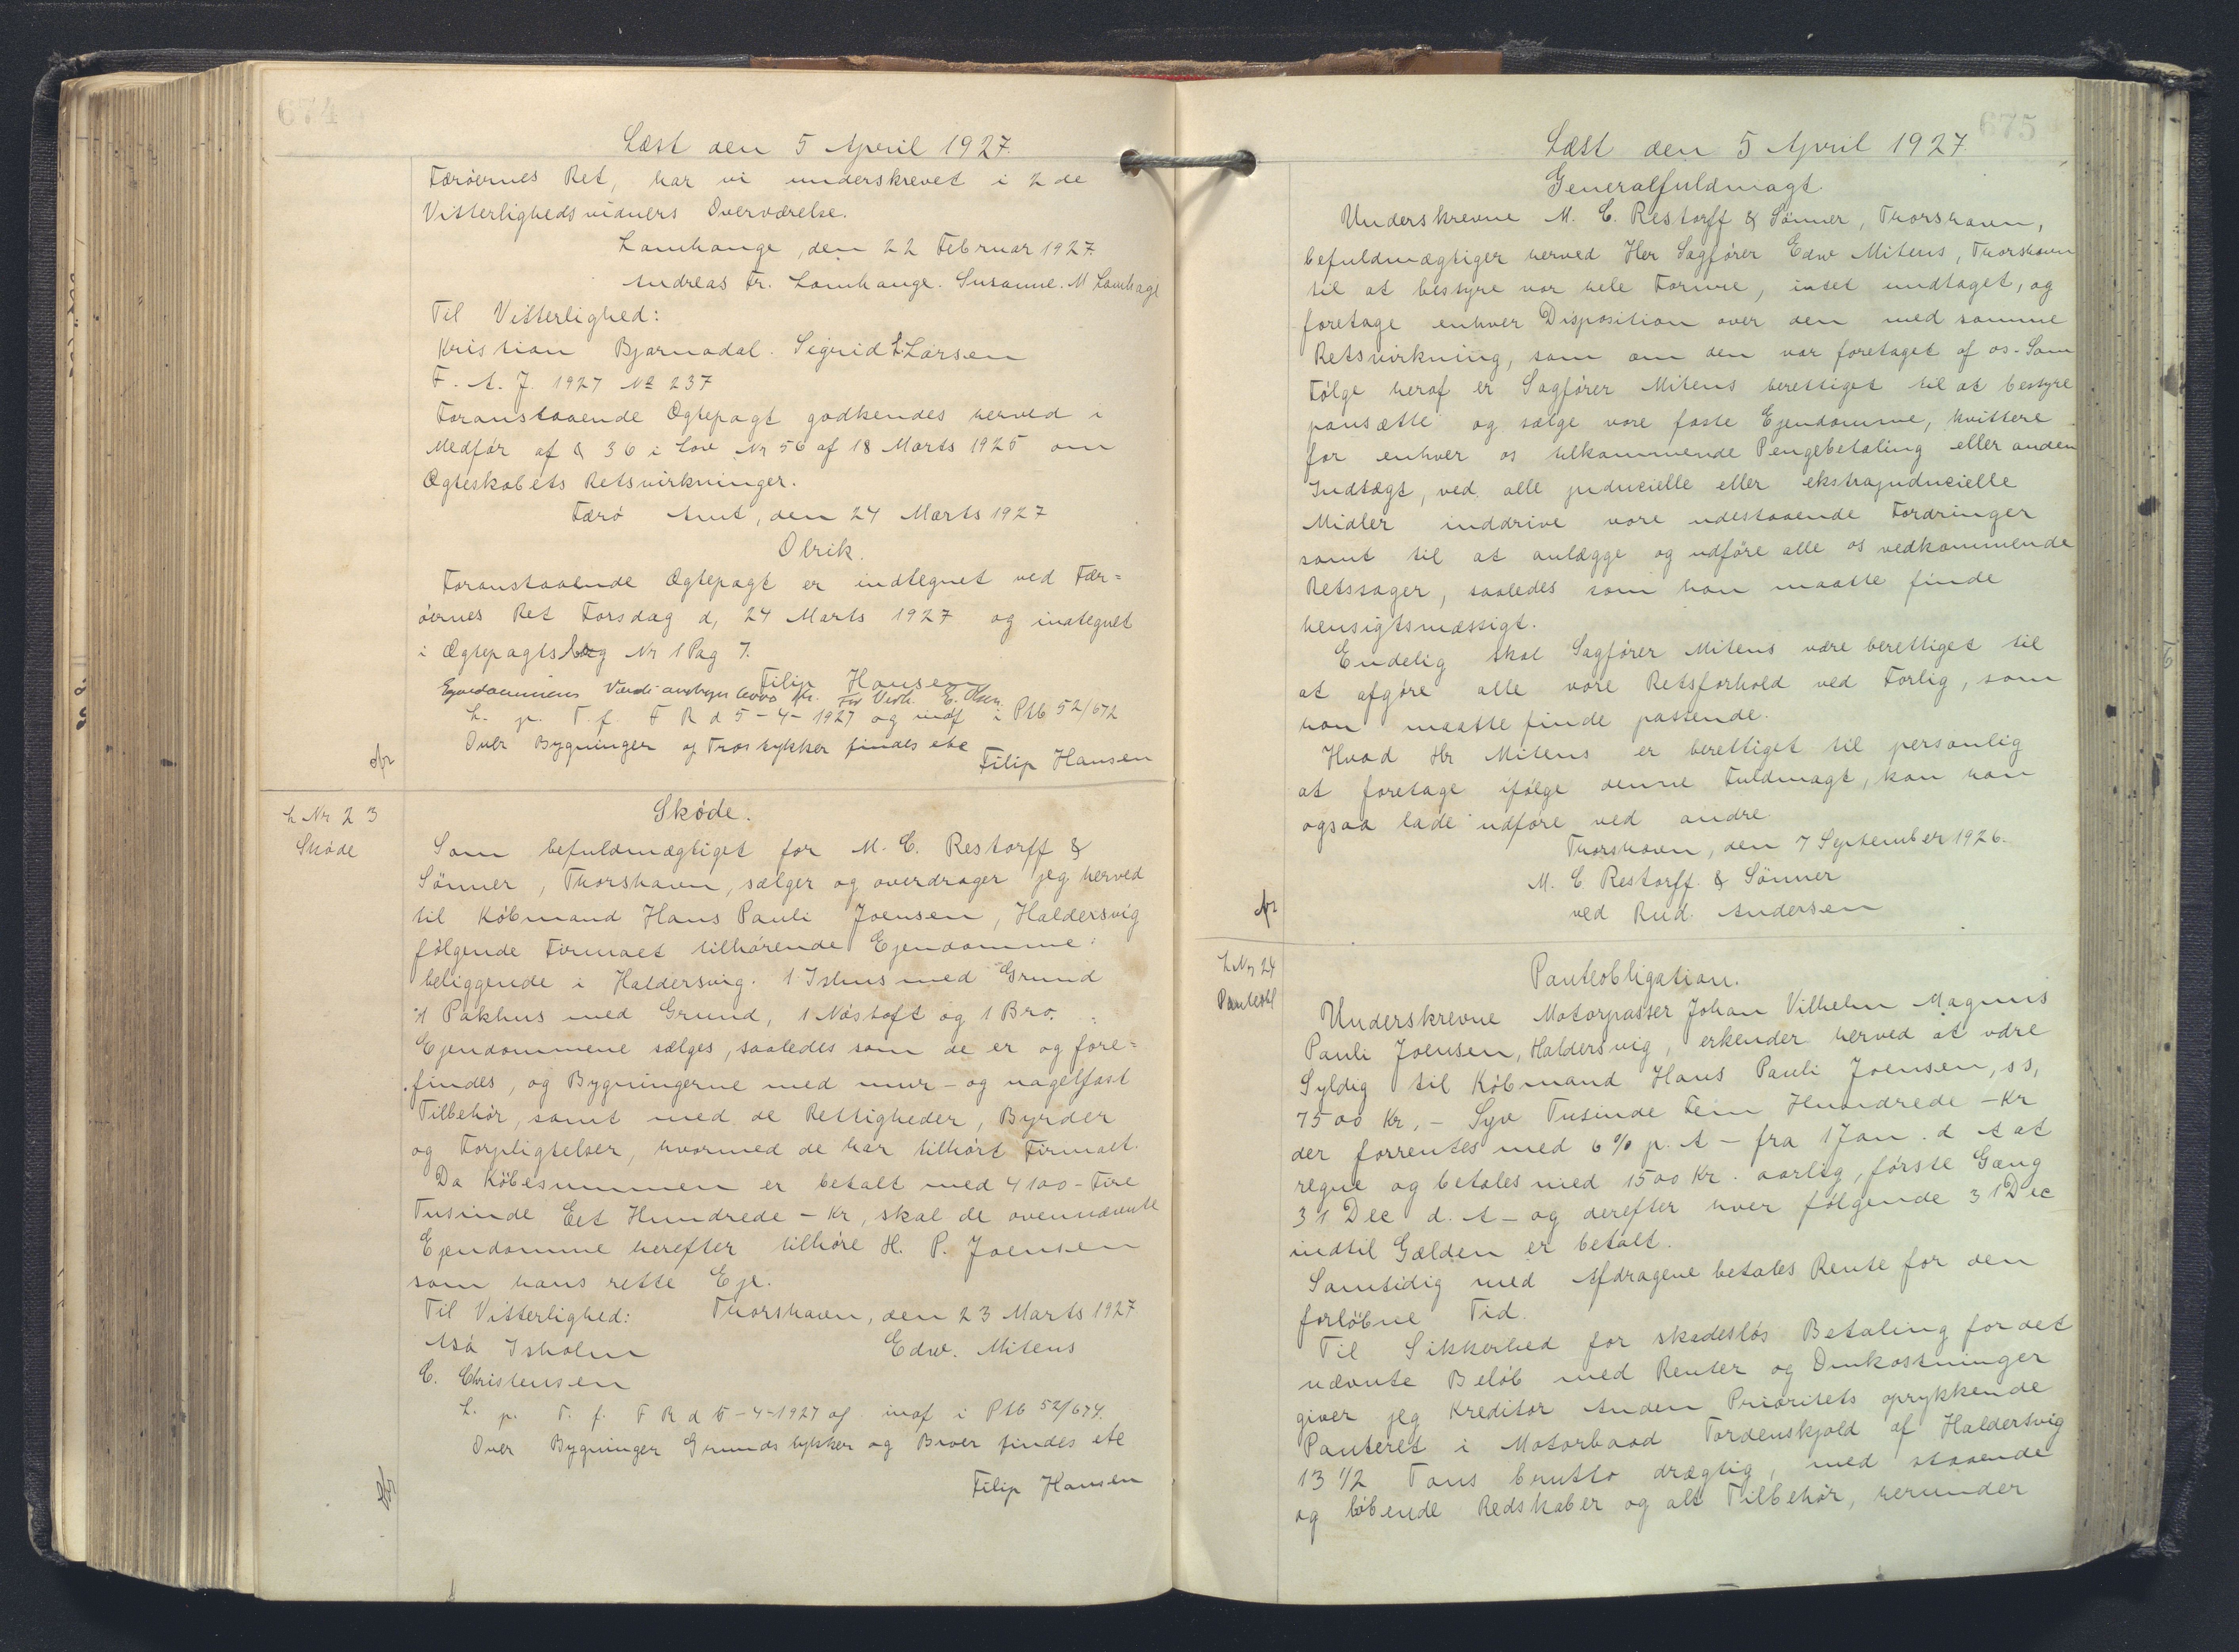 674
Læst den 5 April 1927.
Færøernes Ret, har vi underskrevet i 2 de
Vitterlighedsvidners Overværelse.
Lamhauge, den 22 Februar 1927.
Andreas Fr. Lamhauge. Susanne. M Lamhage
Til Vitterlighed:
Kristian Bjarnadal. Sigrid L. Larsen
F. A. J. 1927 № 237
Foranstaaende Ægtepagt godkendes herved i
Medfør af § 36 i Lov Nr 56 af 18 Marts 1925 om
Ægteskabets Retsvirkninger.
Færø Amt, den 24 Marts 1927
Olrik.
Foranstaaende Ægtepagt er indtegnet ved Fær=
øernes Ret Torsdag d, 24 Marts 1927 og indtegnet
i Ægtepagtsbog Nr 1 Pag 7.
Filip Hansen
Ejendommens Værdi angives Kr. For Vedk. E. Olsen.
L. p. T. f. F R d 5-4-1927 og indf i Ptb 52/672
Over Bygninger og Træstykker findes ete
Filip Hansen
L Nr 23
Skøde
Skøde.
Som befuldmægtiget for M. C. Restorff &
Sønner, Thorshavn, sælger og overdrager jeg herved
til Købmand Hans Pauli Joensen, Haldersvig
følgende Firmaet tilhørende Ejendomme:
beliggende i Haldersvig. 1 Ishus med Grund
1 Pakhus med Grund, 1 Nøstoft og 1 Bro.
Ejendommene sælges, saaledes som de er og fore=
findes, og Bygningerne med mur- og nagelfast
Tilbehør, samt med de Rettigheder, Byrder
og Forpligtelser, hvormed de har tilhørt Firmaet.
Da Købesummen er betalt med 4100 - Fire
Tusinde Eet Hundrede - Kr, skal de ovennævnte
Ejendomme herefter tilhøre H. P. Joensen
som hans rette Eje.
Til Vitterlighed: Thorshavn, den 23 Marts 1927
Isholm Edw. Mitens
C. Christensen
L. p. T. f. F R d 5-4-1927 og indf i Ptb 52/674.
Over Bygninger Grundstykker og Broer findes ete
Filip Hansen
675
Læst den 5 April 1927.
Generalfuldmagt.
Underskrevne M. C. Restorff & Sønner, Thorshavn,
befuldmægtiger herved Her Sagfører Edw Mitens, Thorshavn
til at bestyre vor hele Formue, intet undtaget, og
foretage enhver Disposition over den med samme
Retsvirkning, som om den var foretaget af os. Som
Følge heraf er Sagfører Mitens berettiget til at bestyre
pansætte og sælge vore faste Ejendomme, kvittere
for enhver os tilkommende Pengebetaling eller anden
Indtægt, ved alle juducielle eller ekstrajuducielle
Midler inddrive vore udestaaende Fordringer
samt til at anlægge og udføre alle os vedkommende
Retssager, saaledes som han maatte finde
hensigtsmæssigt.
Endelig skal Sagfører Mitens være berettiget til
at afgøre alle vore Retsforhold ved Forlig, som
han maatte finde passende.
Hvad Hr Mitens er berettiget til personlig
at foretage ifølge denne Fuldmagt, kan han
ogsaa lade udføre ved andre.
Thorshavn, den 7 September 1926.
M. C. Restorff & Sønner
ved Rud. Andersen
L Nr 24
Panteobl
Panteobligation.
Underskrevne Motorpasser Johan Vilhelm Magnus
Pauli Joensen, Haldersvig, erkender herved at være
Syldig til Købmand Hans Pauli Joensen, ss,
7500 Kr, - Syv Tusinde Fem Hundrede - Kr
der forrentes med 6 % p. A - fra 1 Jan. d A at
regne og betales med 1500 Kr. aarlig, første Gang
31 Dec d. A - og derefter hver følgende 31 Dec
indtil Gælden er betalt.
Samtidig med Afdragene betales Rente for den
forløbne Tid.
Til Sikkerhed for skadesløs Betaling for det
nævnte Beløb med Renter og Omkostninger
giver jeg Kreditor Anden Prioritets oprykkende
Panteret i Motorbaad Tordenskjold af Haldersvig
13 1/2 Tons brutto drægtig, med staaende
og løbende Redskaber og alt Tilbehør, herunder